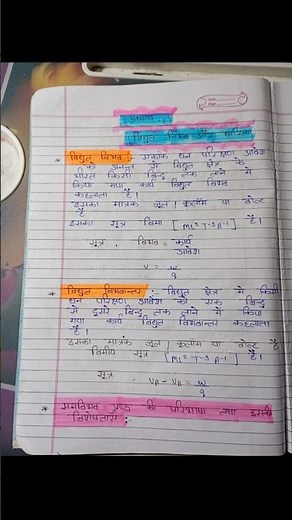 अध्याय
विद्युत विभव और धारिता
* विद्युत विभव :- एकांक धन परिक्षण आवेश
को अनन्त से विद्युत क्षेत्र के
भीतर किसी बिन्दु तक लाने में
किया गया कार्य विद्युत विभव
कहलाता है।
इसका मात्रक जूल / कूलॉम या वोल्ट
है
इसका सूत्र विमा [ML² T-3 A-1] है।
सूत्र , विभव = कार्य
आवेश
V = w
q
* विद्युत विभवान्तर :- विद्युत क्षेत्र में किसी
धन परिक्षण आवेश को एक बिन्दु
से दूसरे बिन्दु तक लाने में किया
गया कार्य विद्युत विभवान्तर कहलाता
है।
इसका मात्रक जूल कूलॉम या वोल्ट है
विमीय सूत्र [ML² T-3 A-1] है।
सूत्र
VA - VB = w
q
* समविभव पृष्ठ की परिभाषा तथा इसकी
विशेषताएं :